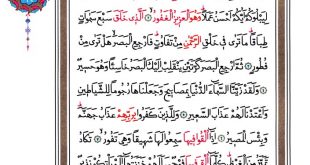 لِيَبْلُوَكُمْ أَيُّكُمْ أَحْسَنُ عَمَلًا وَهُوَ الْعَزِيزُ الْغَفُورُ الَّذِي خَلَقَ سَبْعَ سَمٰوَاتٍ
طِبَاقًا مَا تَرٰى فِي خَلْقِ الرَّحْمٰنِ مِنْ تَفَاوُتٍ فَارْجِعِ الْبَصَرَ هَلْ تَرٰى مِنْ
فُطُورٍ ثُمَّ ارْجِعِ الْبَصَرَ كَرَّتَيْنِ يَنْقَلِبْ إِلَيْكَ الْبَصَرُ خَاسِئًا وَهُوَ حَسِيرٌ
وَلَقَدْ زَيَّنَّا السَّمَاءَ الدُّنْيَا بِمَصَابِيحَ وَجَعَلْنَاهَا رُجُومًا لِلشَّيَاطِينِ
وَأَعْتَدْنَا لَهُمْ عَذَابَ السَّعِيرِ وَلِلَّذِينَ كَفَرُوا بِرَبِّهِمْ عَذَابُ جَهَنَّمَ
وَبِئْسَ الْمَصِيرُ إِذَا أُلْقُوا فِيهَا سَمِعُوا لَهَا شَهِيقًا وَهِيَ تَفُورُ تَكَادُ